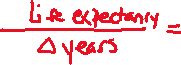 Life expectancy
Δ years =